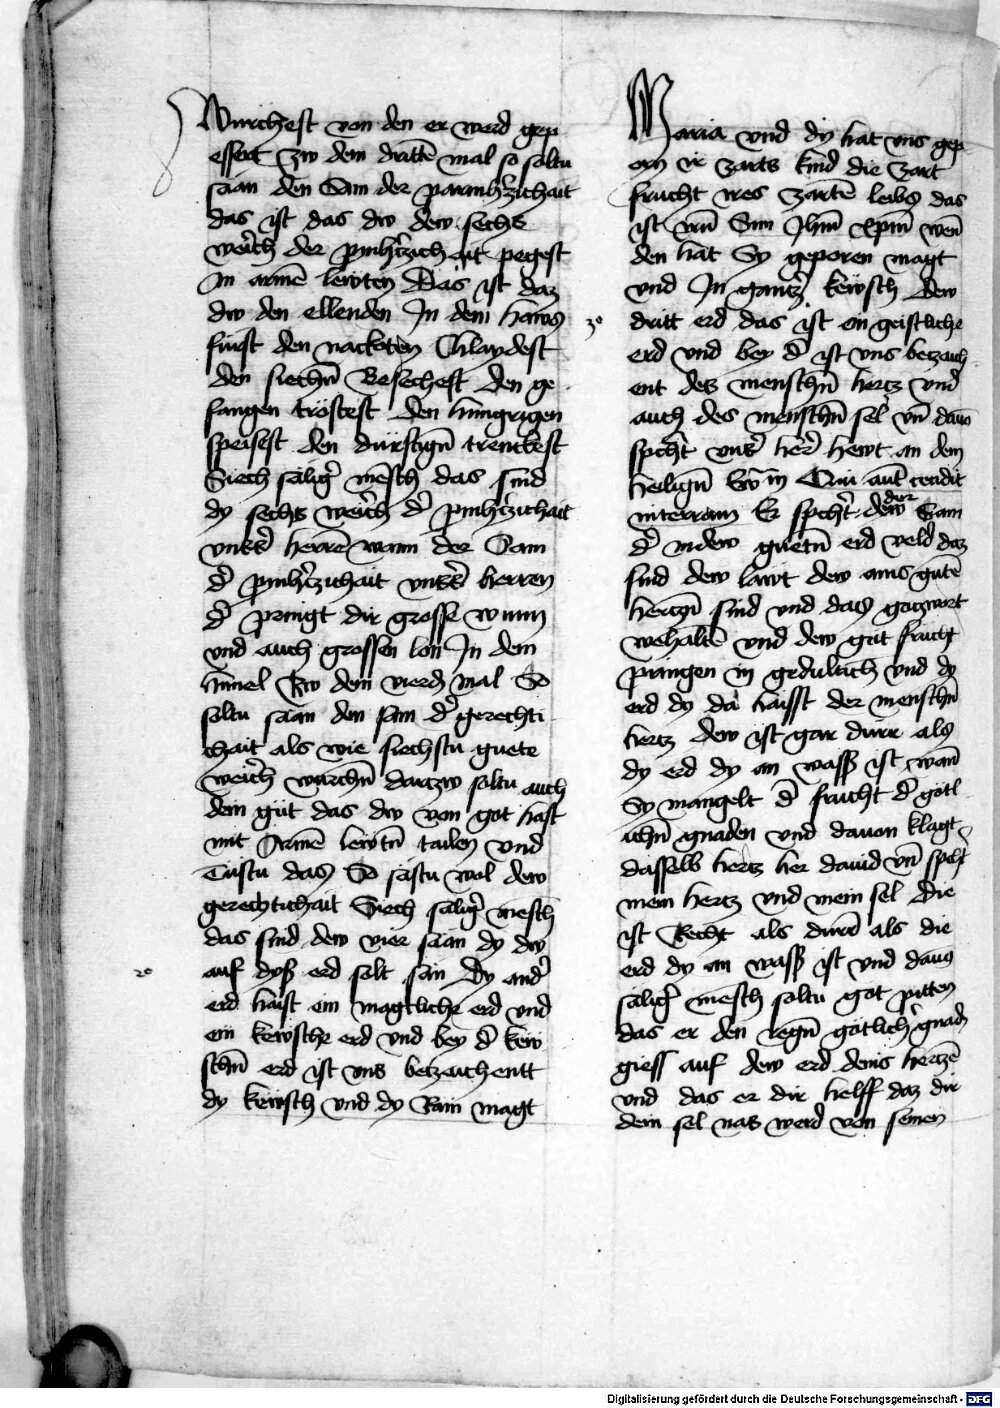 Würchest von den er werd gep
essert zw dem dritten mal so soltu
sään den Sam der parmhertzichait
das ist das dw dew sechs
werch der pmhertzichait pegest
In armen lewten Das ist daz
dw den ellenden In dem haws
fürst den nackoten Chlaydest
den siechn Besechest den ge
fangen tröstest den hungrigen
speisest den dürstign trenckest
Siech sälig mensch das sind
dy sechs werch d pmhertzichait
unss herren wann der Sam
d pmhertzichait unss herren
d pringt dir grosse wunn
und auch grossen lon In dem
himel Zw dem vierd mal So
soltu säan den sam d gerechti
chait als wie siechstu guete
werch würchn dartzw soltu auch
dein güt das dw von got hast
mit Armen lewtn tailen und
Tüstu das So sästu wol dew
gerechtichait Siech sälig mensch
das sind dew vier sään dy dw
auf dyß erd solt sän Dy and
20 erd haist ein magtliche erd und
ein kewsche erd und bey d kew
schn erd ist uns betzaichentt
dy kewsch und dy Rain magt
Maria und dy hat uns gep
orn ir zarts kind die zart
frucht ires zarten leibs das
ist unn Sun Jhm xpm wen
den hat Sy geporen magt
und In gantz kewsch Dew
30 dritt erd das ist ein geistliche
erd und bey d ist uns betzaich
ent des menschn hertz und
auch des menschn sel un dauo
spcht uns her hewt an dem
heilign Ew in Qui aut cecidit
in terram Er spcht dew der Sam
d in dew guetn erd veld daz
sind dew läwt dew ains guten
hertzn sind und das gotzwort
wehalten und dew güt frucht
pringen in gedultich und dy
erd dy da haisst der menschn
hertz dew ist gar dürr als
dy erd dy an wass ist wan
Sy mangelt d frucht d götl
ichn gnaden und dauon klagt
dasselb hertz her dauid un spcht
mein hertz und mein sel die
ist Recht als dürr als die
erd dy an wass ist und dauo
sälig mensch soltu got pitten
das er den regn götlich gnad
giess auf dew erd deins hertzen
und das er dir helff daz dir
dein sel nas werd von seinen
Digitalisierung gefördert durch die Deutsche Forschungsgemeinschaft - DFG